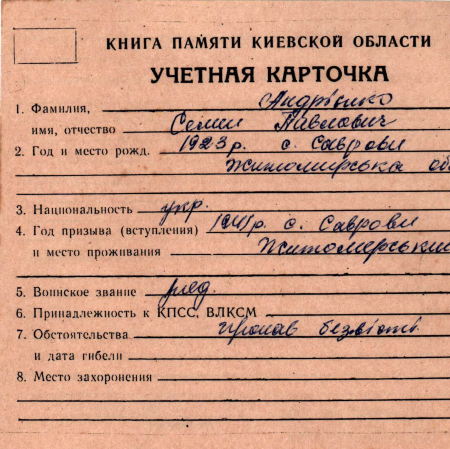 КНИГА ПАМЯТИ КИЕВСКОЙ ОБЛАСТИ
УЧЕТНАЯ КАРТОЧКА
1. Фамилия, Андрієнко
имя, отчество Семен Павлович
2. Год и место рожд. 1923 р. с. Саврови
Житомирська об
3. Национальность укр.
4. Год призыва (вступления) 1941 р. с. Саврови
и место проживания Житомерський
5. Воинское звание ряд.
6. Принадлежность к КПСС, ВЛКСМ
7. Обстоятельства пропав безвісти
и дата гибели
8. Место захоронения